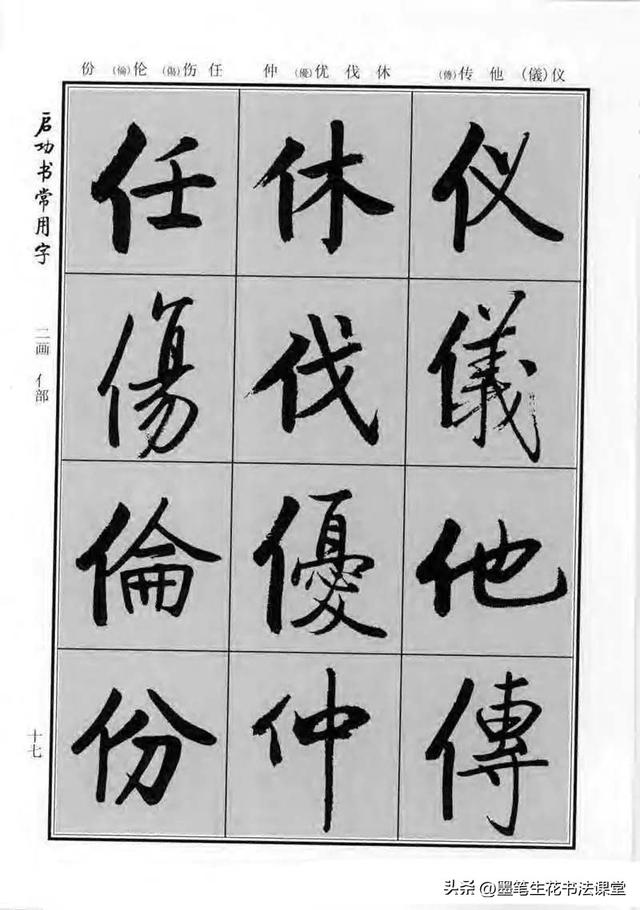 份 (倫)伦 (傷)伤 任 仲 (優)优 伐 休 (傳)传 他 (儀)仪
启功书常用字
二画 亻部
十七
仪
儀
他
傳
休
伐
優
仲
任
傷
倫
份
头条 @墨笔生花书法课堂